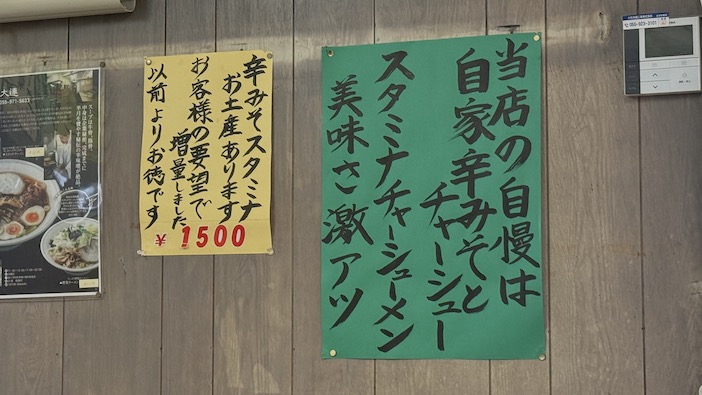 当店の自慢は
自家辛みそと
チャーシュー
スタミナチャーシューメン
美味さ激アツ
辛みそスタミナ
お土産あります
お客様の要望で
増量しました
以前よりお徳です
¥1500
大連
055-971-5633
055-923-3101